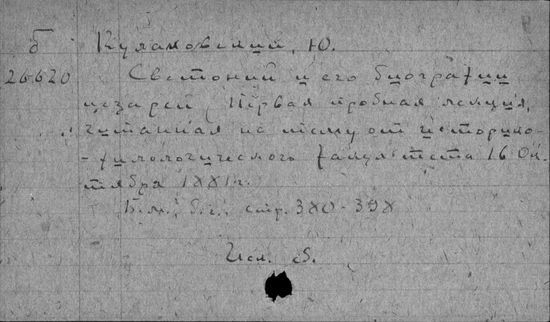 б Кулаковский, Ю.
26620 Светоний и его биографии
цезарей (Первая пробная лекция,
читанная на тему от историко-
-филологического факультета 16 Ок
тября 1881г.
Б.м., б.г., стр. 380-398